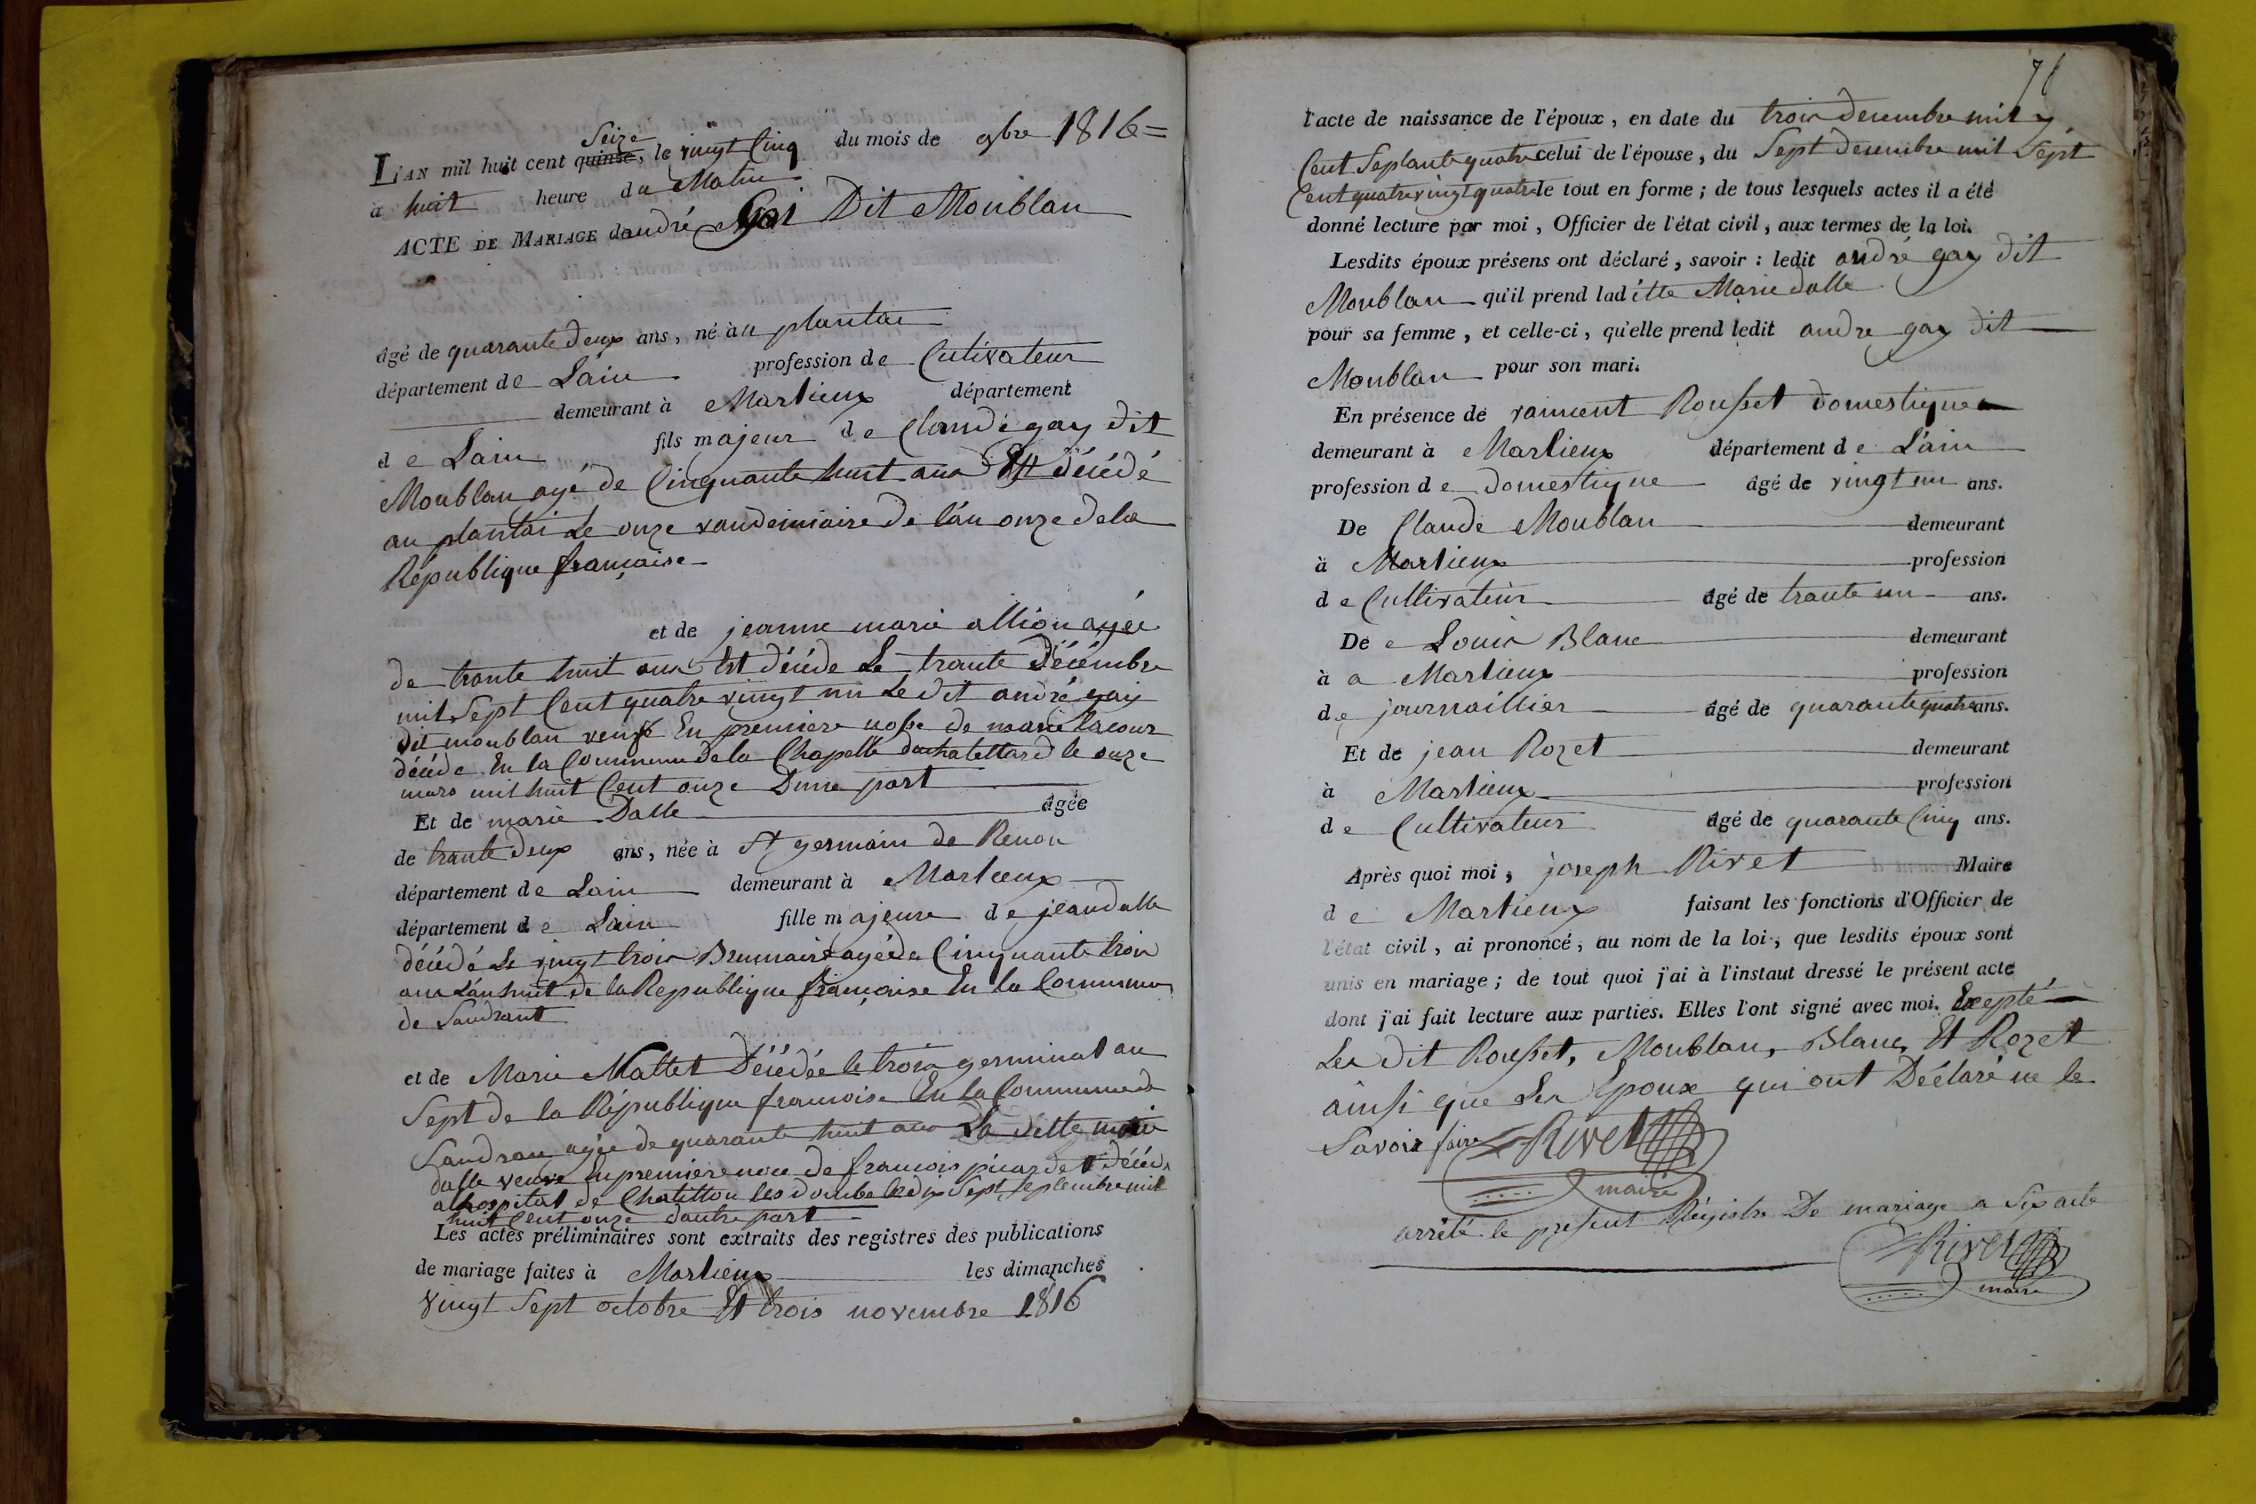 L'AN mil huit cent quinse, Seize le vingt Cinq du mois de 9bre 1816=
a huit heure du Matin
ACTE DE MARIAGE dandré Gai Dit Moublan
âgé de quarante deux ans, né au plantai
département de Lain profession de Cutivateur
demeurant à Marlieux département
de Lain fils majeur de Claude gay dit
Moublan agé de Cinquante huit ans Est décédé
au plantai Le onze vandemiaire de l'an onze dela
République française
et de jeanne marie allion agée
de trante huit ans Est décéde Le trante Décémbre
mil Sept Cent quatre vingt un Le dit andré gay
dit moublan veuf En premiere nosse de marie Lacour
décéde En la Commune de la Chapelle duchatellard le onze
mars mil huit Cent onze Dune part
Et de marie Dalle âgée
de trante deux ans, née à St germain de Renon
département de Lain demeurant à Marlieux
département de Lain fille majeure de jean dalle
décédé Le vingt trois Brumaire agé de Cinquante trois
ans L'an huit de la République française En la Commune
de Sandrant
et de Marie Mallet Décédée le trois germinal an
Sept de la République francoise En la Commune de
Sandran agée de quarante huit ans La ditte marie
dalle veuve En premiere noce de francois picardet décéde
a lhospital de Chatillon les dombe le dix Sept septembre mil
huit Cent onze dautre part
Les actes préliminaires sont extraits des registres des publications
de mariage faites à Marlieux les dimanches
vingt Sept octobre Et trois novembre 1816
l'acte de naissance de l'époux, en date du trois decembre mil 7
Cent Septante quatre celui de l'épouse, du Sept decembre mil Sept
Cent quatre vingt quatre le tout en forme; de tous lesquels actes il a été
donné lecture par moi, Officier de l'état civil, aux termes de la loi.
Lesdits époux présens ont déclaré, savoir: ledit andré gay dit
Moublan qu'il prend laditte Marie dalle
pour sa femme, et celle-ci, qu'elle prend ledit andre gay dit
Moublan pour son mari.
En présence de raiment Rousset domestique
demeurant à Marlieux département de L'ain
profession de domestique âgé de vingt un ans.
De Claude Moublan demeurant
à Marlieux profession
de Cultivateur âgé de trante un ans.
De Louis Blanc demeurant
à a Marlieux profession
de journaillier âgé de quarante quatre ans.
Et de jean Rozet demeurant
à Marlieux profession
de Cultivateur âgé de quarante Cinq ans.
Après quoi moi, joseph Rivet Maire
de Marlieux faisant les fonctions d'Officier de
l'état civil, ai prononcé, au nom de la loi, que lesdits époux sont
unis en mariage; de tout quoi j'ai à l'instaut dressé le présent acte
dont j'ai fait lecture aux parties. Elles l'ont signé avec moi. Excepté
Les dit Rousset, Moublan, Blanc, Et Rozet
ainsi que Les Epoux qui ont Déclaré ne le
Savoir faire Rivet
maire
arrêté le present Régistre De mariage a Six acte
Rivet
maire